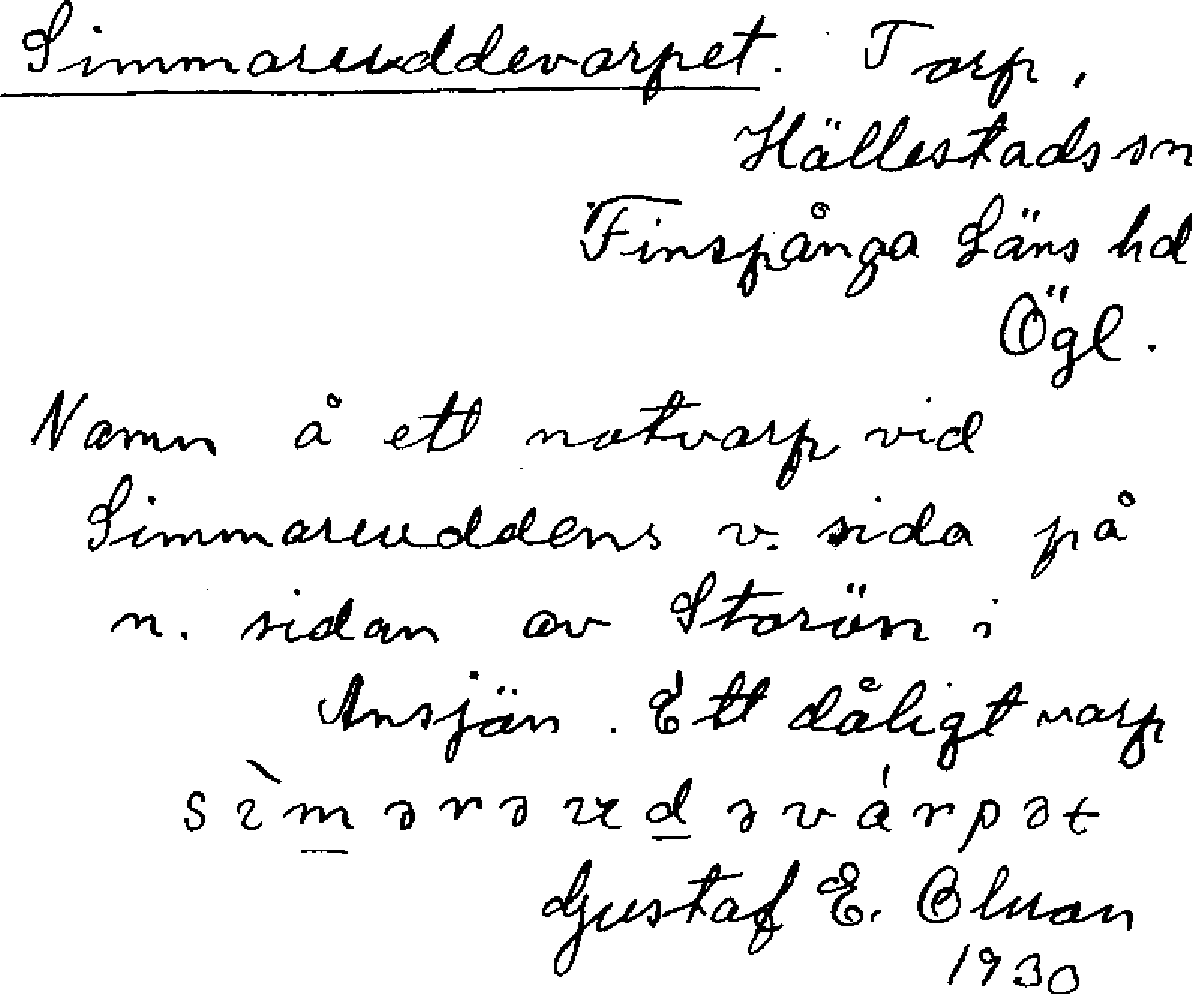 Simmareuddevarpet. Torp,
Hällestads sn
Finspånga Läns hd
Ögl.
Namn å ett notvarp vid
Simmareuddens v. sida på
n. sidan av Storön i
Ansjön. Ett dåligt varp
Gustaf E. Olsson
1930